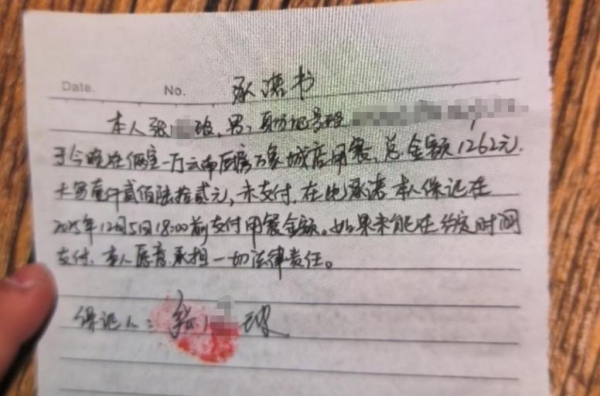 Date. No. 承诺书
本人张 玻,男,身份证号码
于今晚在偶寓一方云南厨房万象城店用餐,总金额1262元.
大写壹仟贰佰陆拾贰元,未支付,在此承诺本人保证在
2025年12月5日18:00前支付用餐金额。如果未能在约定时间
支付,本人愿意承担一切法律责任。
保证人: 张 玻